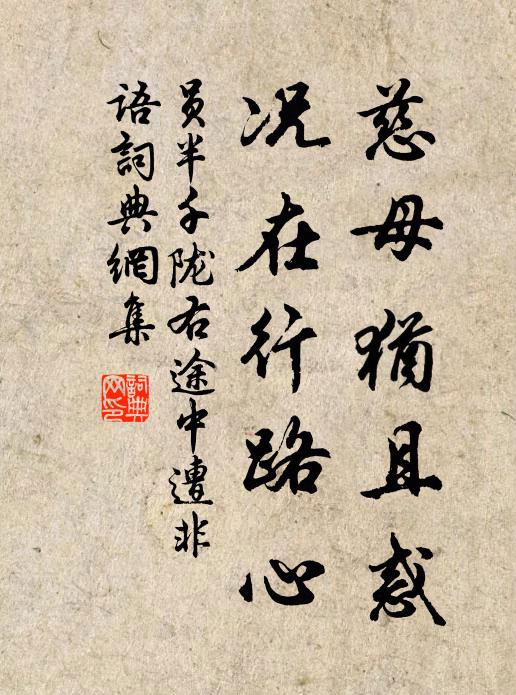 慈母犹且惑
况在行路心
员半千陇右途中遭非
语詞典網集
詞典
网印